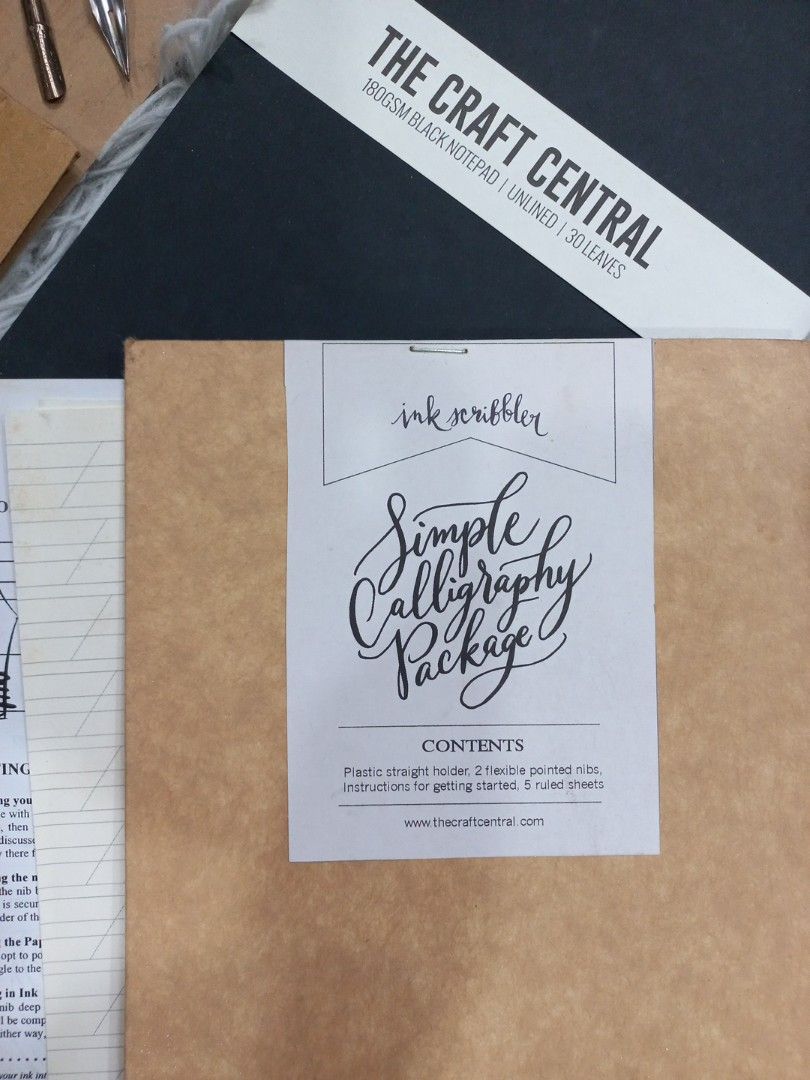 THE CRAFT CENTRAL
180GSM BLACK NOTEPAD | UNLINED | 30 LEAVES
ink scribbler
Simple
Calligraphy
Package
CONTENTS
Plastic straight holder, 2 flexible pointed nibs,
Instructions for getting started, 5 ruled sheets
www.thecraftcentral.com
ING
ng you
e with
, then
discusse
y there f
g the n
the nib b
is secur
der of th
g the Pap
opt to po
gle to the
g in Ink
nib deep
l be comp
ither way,
your ink int